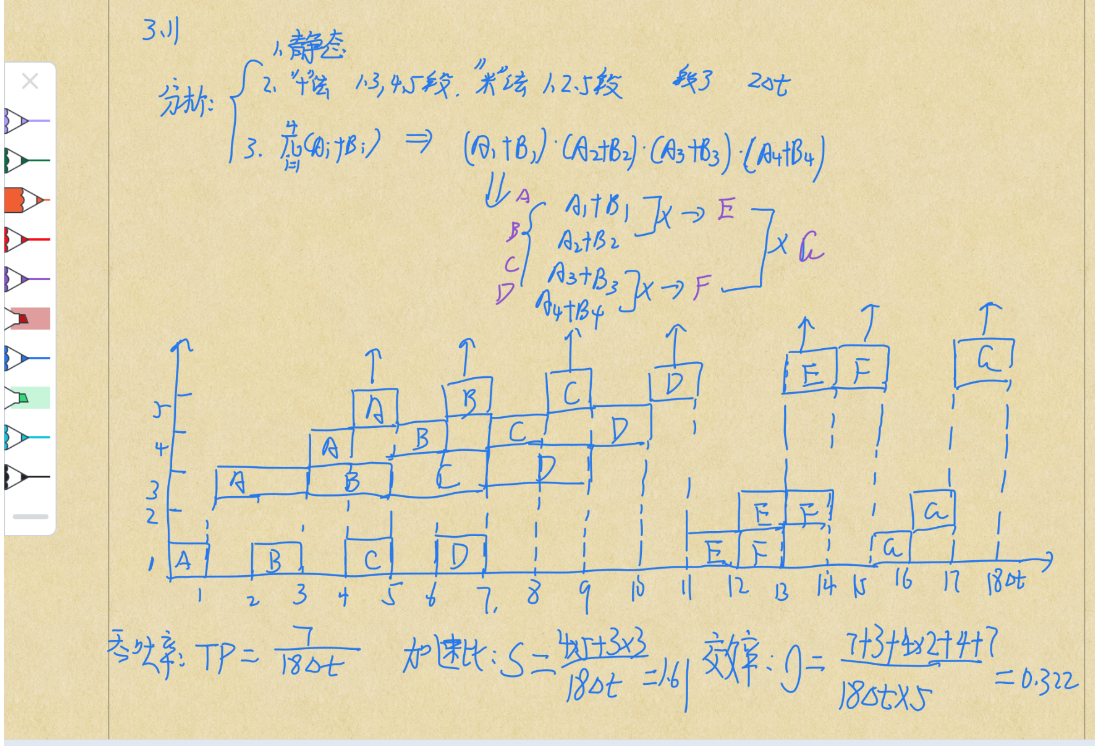 3.11
1. 静态
分析: 2. "+"法 1,3,4,5段. "米"法 1,2.5段 段3 2Δt
3. 4 π i=1 (Ai+Bi) ⇒ (A1+B1)·(A2+B2)·(A3+B3)·(A4+B4)
A A1+B1 ]X → E
B A2+B2 X G
C A3+B3 ]X → F
D A4+B4
A B C D E F G
5 A B C D
4 A B C D
3 A B C D
2 E F G
1 A B C D E F G
1 2 3 4 5 6 7. 8 9 10 11 12 13 14 15 16 17 18Δt
吞吐率: TP = 7/18Δt 加速比: S = 4x5+3x3/18Δt = 1.61 效率: η = 7+3+4x2+4+7/18Δtx5 = 0.322